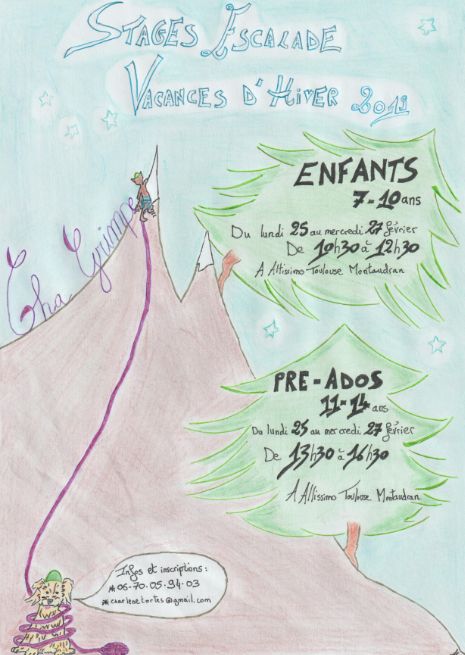 STAGES ESCALADE
VACANCES D'HIVER 2019
Cha Grimpe
ENFANTS
7-10 ans
Du lundi 25 au mercredi 27 février
De 10h30 à 12h30
A Altissimo Toulouse Montaudran
PRE-ADOS
11-14 ans
Du lundi 25 au mercredi 27 février
De 13h30 à 16h30
A Altissimo Toulouse Montaudran
Infos et inscriptions :
* 06-70-05-94-03